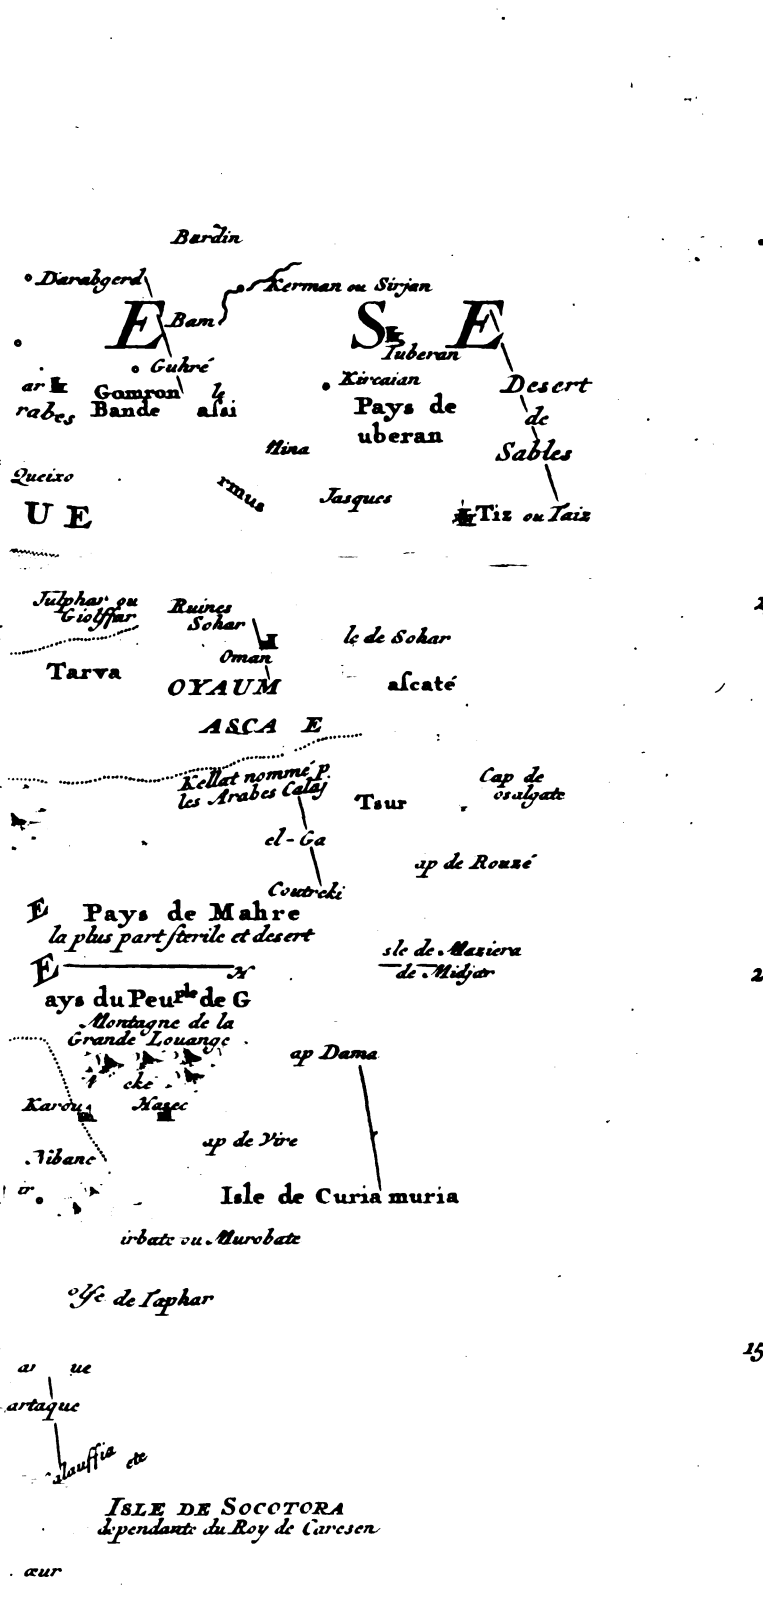 Bardin
Darabgerd
Kerman ou Sirjan
E
Bam
S E
Tuberan
Guhré
Kircaian
ar
Gomron
le
Desert
rabes
Bande
assi
Pays de
de
uberan
Mina
Sables
Queixo
rmus
Jasques
U E
Tiz ou Taiz
Julphar ou
Giolffar
Ruines
Sohar
le de Sohar
Oman
Tarva
OYAUM
aſcaté
ASCA E
Kellat nommé p.
les Arabes Calaj
Tsur
Cap de
osalgate
el-Ga
ap de Rouzé
Coutreki
E
Pays de Mahre
la plus part ſterile et desert
sle de Maziera
de Midjar
E
ays du Peuple de G
Montagne de la
Grande Louange
ap Dama
eke
Karou
Hasec
ap de Vire
Nibane
Isle de Curia muria
irbate ou Murobate
olfe de Taphar
15
ar ue
artaque
alauffia ete
ISLE DE SOCOTORA
dependante du Roy de Caresen
œur